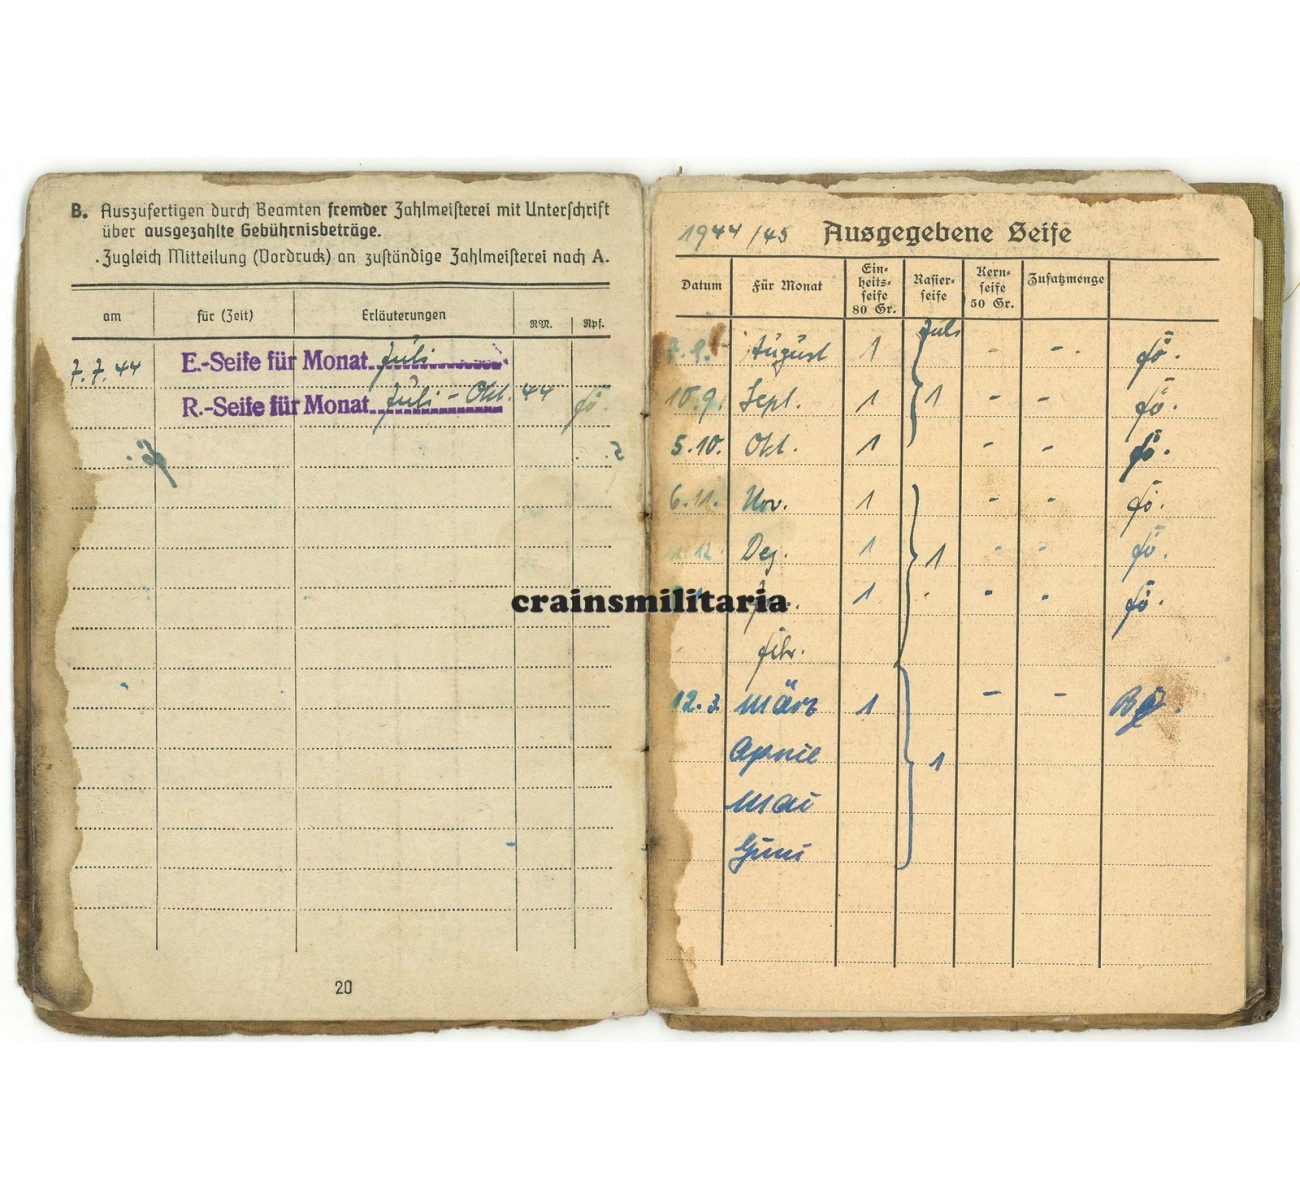 B. Auszufertigen durch Beamten fremder Zahlmeisterei mit Unterschrift
über ausgezahlte Gebührnisbeträge.
Zugleich Mitteilung (Vordruck) an zuständige Zahlmeisterei nach A.
am für (Zeit) Erläuterungen RM. Rpf.
7.7.44 E.-Seife für Monat Juli
R.-Seife für Monat Juli - Okt. 44 Fö
20
1944/45 Ausgegebene Seife
Datum Für Monat Ein-heits-seife 80 Gr. Rasier-seife Kern-seife 50 Gr. Zusatzmenge
Juli
7.9. August 1 - - Fö.
10.9. Sept. 1 1 - - Fö.
5.10. Okt. 1 - - Fö.
6.11. Nov. 1 - - Fö.
1.12. Dez. 1 1 - - Fö.
1 - - Fö.
Febr.
12.3. März 1 - -
April 1
Mai
Juni
crainsmilitaria